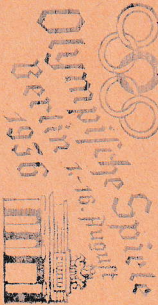 Olympische Spiele
Berlin 1-16 August
1936